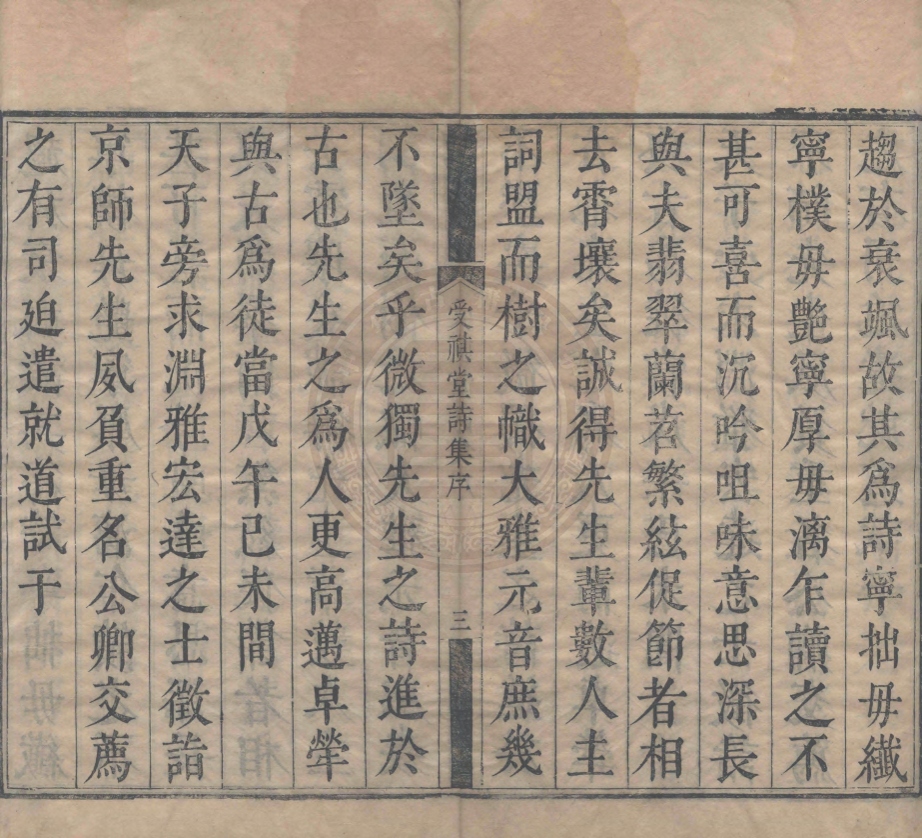 趨於衰颯故其爲詩寧拙毋纖
寧樸毋艷寧厚毋漓乍讀之不
甚可喜而沉吟咀味意思深長
與夫翡翠蘭苕繁絃促節者相
去霄壤矣誠得先生輩數人主
詞盟而樹之幟大雅元音庶幾
受祺堂詩集序 三
不墜矣乎微獨先生之詩進於
古也先生之爲人更高邁卓犖
與古爲徒當戊午已未間
天子旁求淵雅宏達之士徵詣
京師先生夙負重名公卿交薦
之有司廹遣就道試于